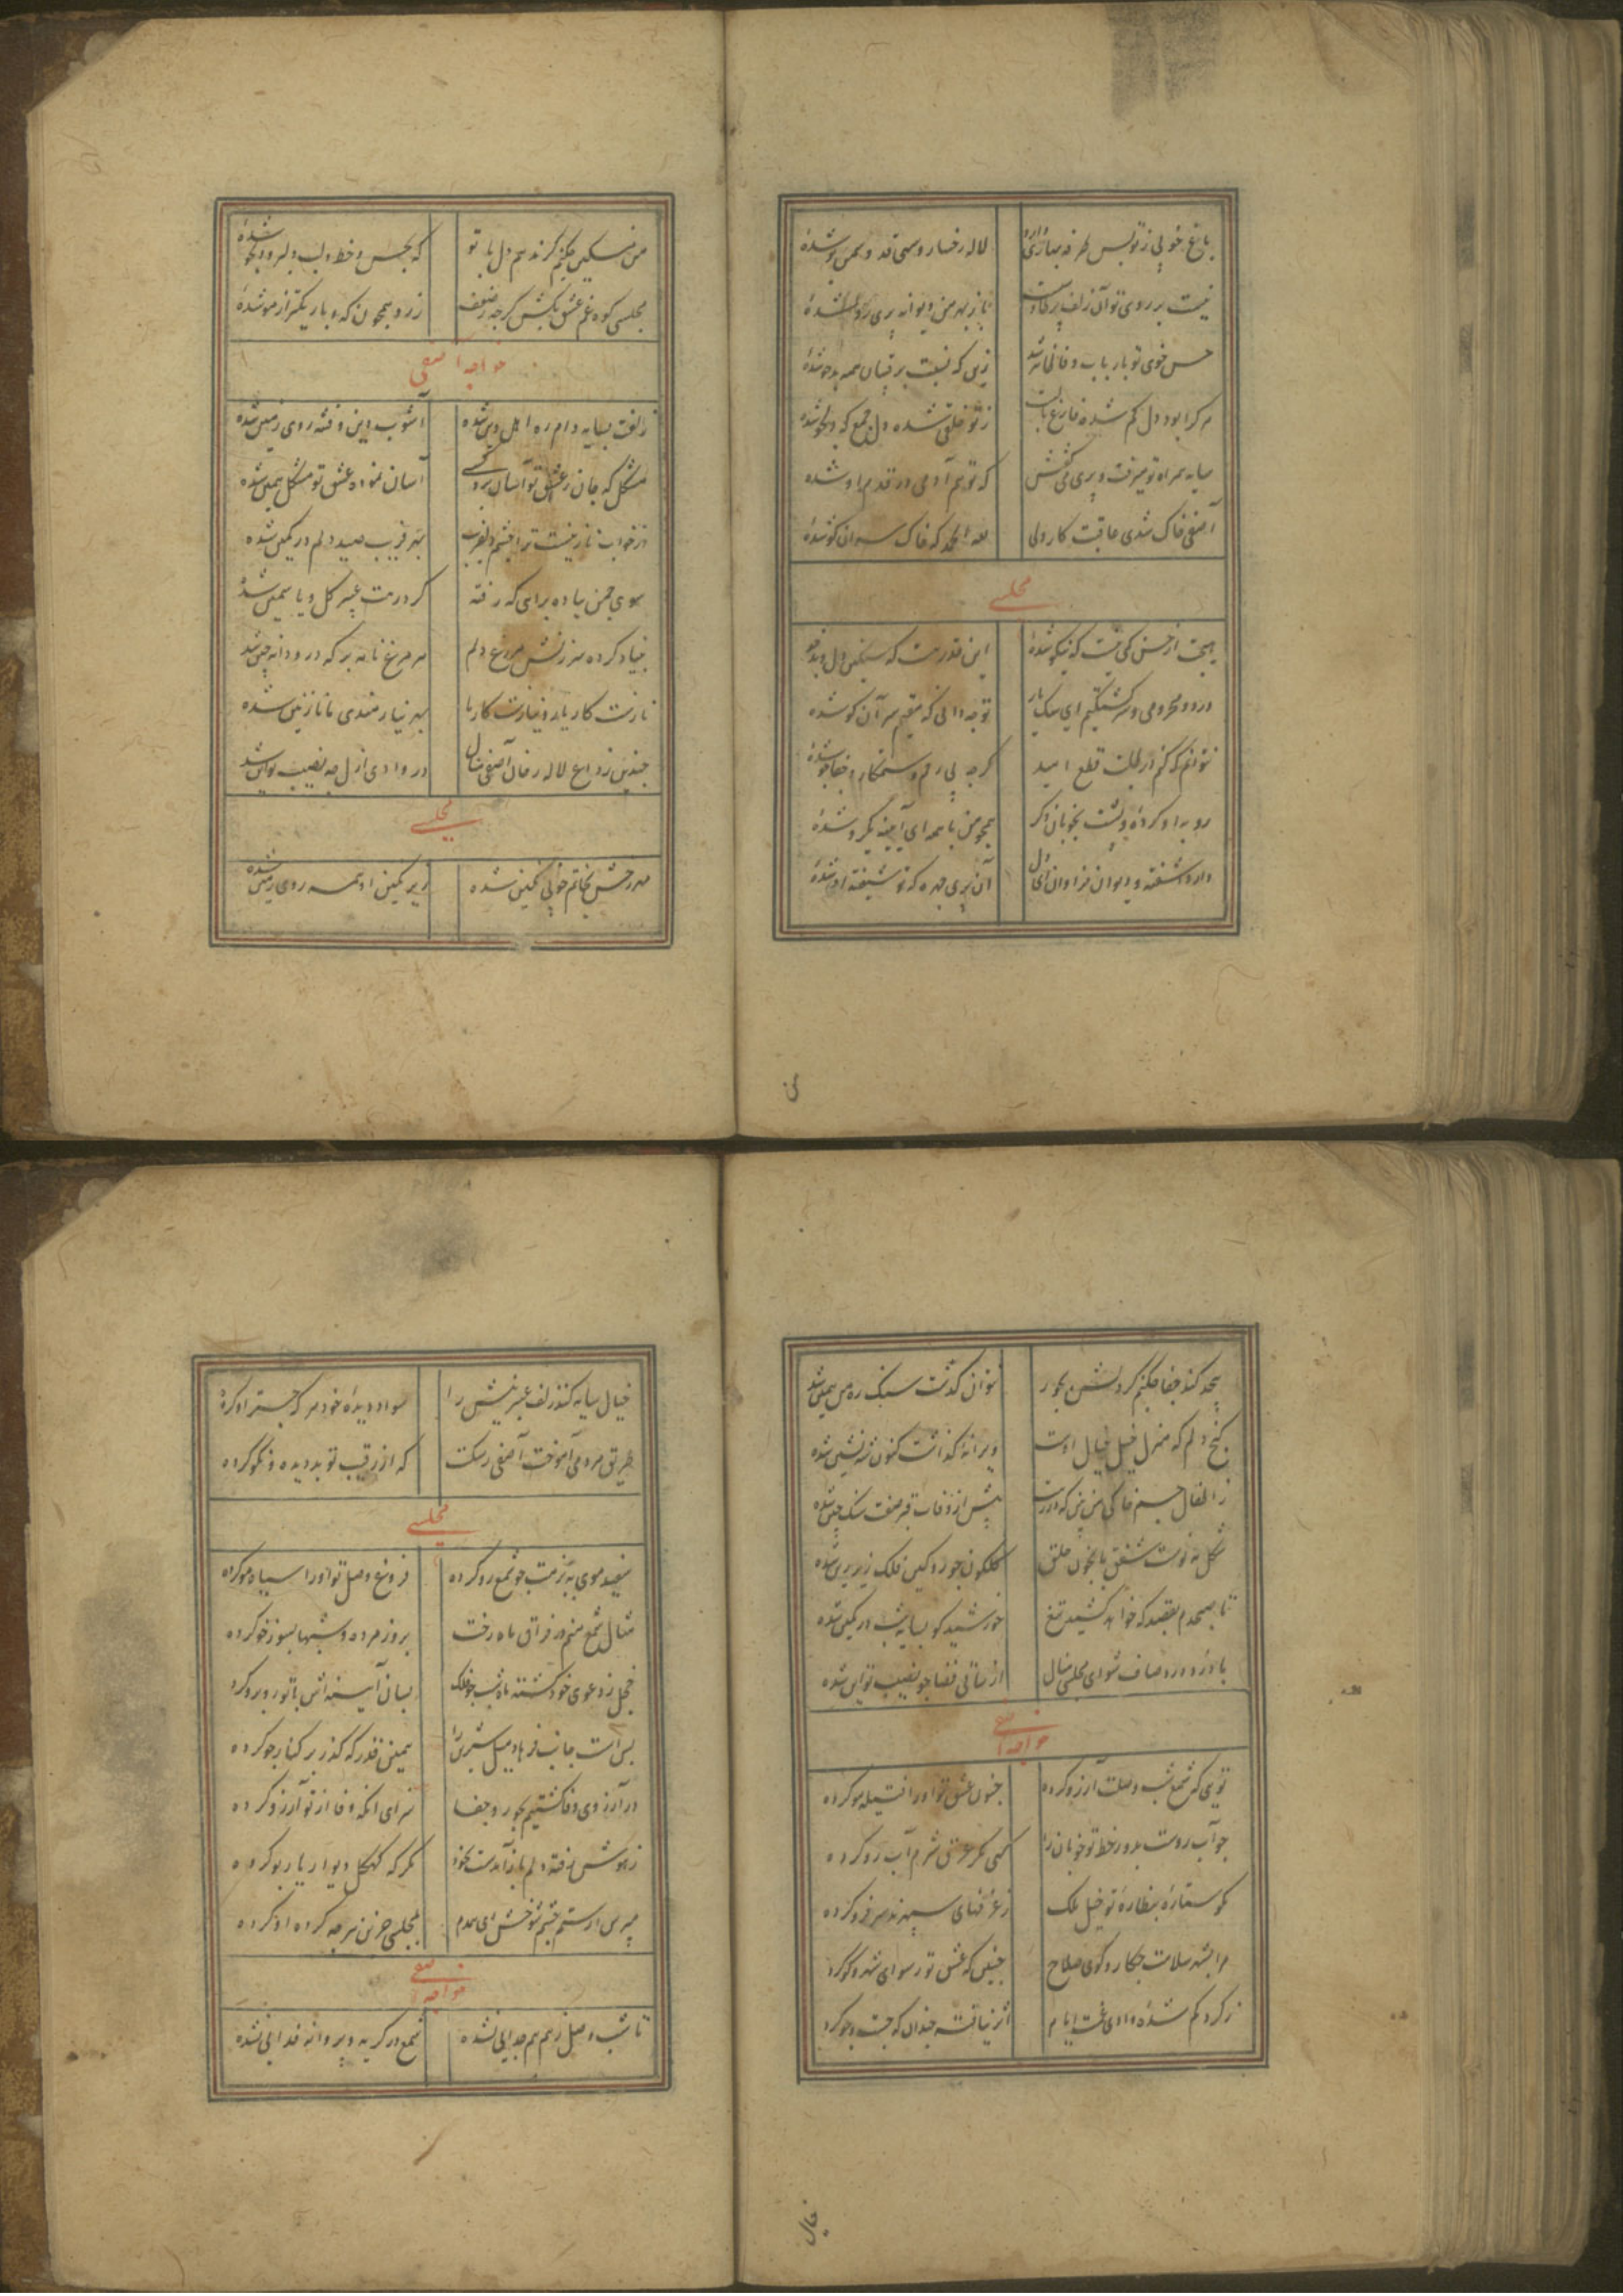 باغ خوبی ز تو بس طرفه بهاری دارد لاله رخسار و سهی قد و سمن بو شدهٔ
نیست بر روی تو آن زلف پریشان ز بهر من دیوانه پری رو شدهٔ
حسن خوی تو بارباب وفا فانی شد زین که نسبت برقیبان همه بدخو شدهٔ
هر کرا بود دل کم شده فارغ ز تو خلقی شده دل جمع که دلجو شدهٔ
سایه همراه تو میرفت و پری میگفتش که تو هم آدمی در قدم او شدهٔ
آصفی خاک شدی عاقبت کار ولی لله الحمد که خاک سر آن کو شدهٔ
مجلسی
هیچت از حسن کمی نیست که نیکو شدهٔ این قدر هست که سنگین دل و بدخو
درد و محرومی و سرگشتگیم ای سگ یار تو چه دانی که مقیم سر آن کو شدهٔ
نتوانم که کنم از طلبت قطع امید گرچه بی رحم و ستمکار و جفاجو شدهٔ
رو باو کردهٔ و پشت بخوبان دگر همچو من با همه ای آینه یکرو شدهٔ
دارد آشفته و دیوانه فراوان ای دل آن پری چهره که تو شیفتهٔ او شدهٔ
من
من مسکین نکنم گر ندهم دل با تو که بحسن و خط و لب دلبر و دلجو شدهٔ
مجلسی کوه غم عشق بکش گرچه ز ضعف زرد و همچون که و باریکتر از مو شدهٔ
خواجه آصفی
زلفت بسایه دام ره اهل دین شده آشوب دین و فتنه روی زمین شده
مشکل که جان ز عشق تو آسان برد کسی آسان نموده عشق تو مشکل همین شده
در خواب ناز نیست ترا چشم دلفریب بهر فریب صید دلم در کمین شده
سوی چمن پیاده براهی که رفته گر درهت عبیر گل و یاسمین شده
بنیاد کرده سرزنش مرغ دلم هر مرغ نامه بر که درو دانه چین شده
نازست کار یار و نیازست کار ما بهر نیازمندی ما نازنین شده
چندین ز داغ لاله رخان آصفی منال در وادی ازل چه نصیب تو این شده
مجلسی
مهر رخش بخاتم خوبی نگین شده زیر نگین او همه روی زمین شده
بیحد کند جفا نکنم گر دلش بجور نتوان گذشت سنگ ره من همین شده
کنج دلم که منزل خیل خیال اوست ویرانهٔ گذاشت کنون شه نشین شده
ز اطفال جسم خاکی من بین که از پیش از وفات قبر صفت سنگ چین شده
شکل مه نوست شفق یا بخون خلق گلگون چو زد و کین فلک زیر زین شده
تا صبحدم بقصد که خواهد کشید تیغ خورشید کو بسایه شب در کمین شده
با درد و درد صاف شو ای مجلسی منال از ساقی قضا چو نصیب تو این شده
خواجه آصفی
تویی که شمع شب وصلت آرزو کرده جنون عشق تو او را فتیله مو کرده
چو آب روست بدور خط تو خوبان را کسی مگر عرق شرم آب رو کرده
کو ستاره بنظارهٔ تو خیل ملک ز غرفهای سپهرند سر فرو کرده
مرا بشهر سلامت چکار و کوی صلاح چنین که عشق تو رسوای شهر و کو کرده
ز گرد گم شده وادی غمت ایام اثر نیافته چندان که جست و جو کرده
خیال
خیال سایه کند زلف عنبرینش را سواد دیدهٔ خود هر که جستر او کرده
طریق مردمی آموخت آصفی ز سگت که از رقیب تو بد دیده و نکو کرده
مجلسی
سفید موی به بزمت چو شمع رو کرده فروغ وصل تو او را سیاه مو کرده
مثال شمع منم در فراق ماه رخت بروز مرده و شبها بسوز خو کرده
خجل ز دعوی خود گشته ماه شب چو فلک بسان آینه اش با تو روبرو کرده
بس است جانب فرهاد میل شیرین را همین قدر که گذر بر کنار جو کرده
در آرزوی وفا کشتیم بجور و جفا سزای آنکه وفا از تو آرزو کرده
ز هوش رفته دلم باز آمدست بخود مگر که کهگل دیوار یار بو کرده
مپرس از ستم چشم شوخش ای همدم بمجلسی حزین هرچه کرده او کرده
خواجه آصفی
تا شب وصل ز هم هم جدایی نشده شمع در گریه و پروانه فدایی نشده